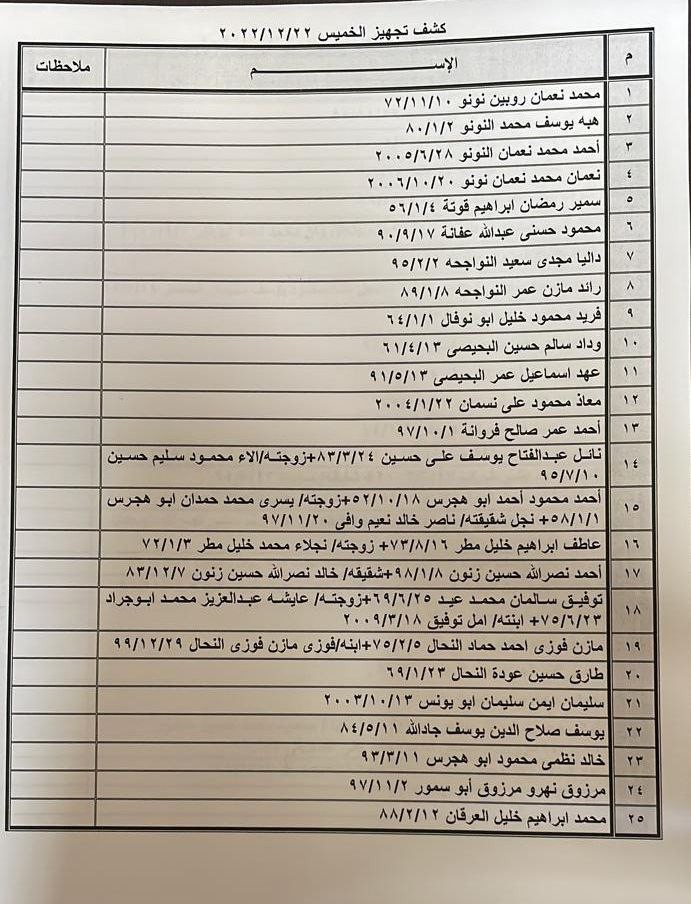 كشف تجهيز الخميس ٢٠٢٢/١٢/٢٢
م الإســـــــــم ملاحظات
١ محمد نعمان روبين نونو ٧٢/١١/١٠
٢ هبه يوسف محمد النونو ٨٠/١/٢
٣ أحمد محمد نعمان النونو ٢٠٠٥/٦/٢٨
٤ نعمان محمد نعمان نونو ٢٠٠٦/١٠/٢٠
٥ سمير رمضان ابراهيم قوتة ٥٦/١/٤
٦ محمود حسنى عبدالله عفانة ٩٠/٩/١٧
٧ داليا مجدى سعيد النواجحه ٩٥/٢/٢
٨ رائد مازن عمر النواجحه ٨٩/١/٨
٩ فريد محمود خليل ابو نوفال ٦٤/١/١
١٠ وداد سالم حسين البحيصى ٦١/٤/١٣
١١ عهد اسماعيل عمر البحيصى ٩١/٥/١٣
١٢ معاذ محمود على نسمان ٢٠٠٤/١/٢٢
١٣ أحمد عمر صالح فروانة ٩٧/١٠/١
١٤ نائل عبدالفتاح يوسف على حسين ٨٣/٣/٢٤+زوجته/الاء محمود سليم حسين
٩٥/٧/١٠
١٥ أحمد محمود أحمد ابو هجرس ٥٢/١٠/١٨+زوجته/ يسرى محمد حمدان ابو هجرس
٥٨/١/١+ نجل شقيقته/ ناصر خالد نعيم وافى ٩٧/١١/٢٠
١٦ عاطف ابراهيم خليل مطر ٧٣/٨/١٦+ زوجته/ نجلاء محمد خليل مطر ٧٢/١/٣
١٧ أحمد نصرالله حسين زنون ٩٨/١/٨+شقيقه/ خالد نصرالله حسين زنون ٨٣/١٢/٧
١٨ توفيق سالمان محمد عيد ٦٩/٦/٢٥+زوجته/ عايشه عبدالعزيز محمد ابوجراد
٧٥/٦/٢٣+ ابنته/ امل توفيق ٢٠٠٩/٣/١٨
١٩ مازن فوزى احمد حماد النحال ٧٥/٢/٥+ابنه/فوزى مازن فوزى النحال ٩٩/١٢/٢٩
٢٠ طارق حسين عودة النحال ٦٩/١/٢٣
٢١ سليمان ايمن سليمان ابو يونس ٢٠٠٣/١٠/١٣
٢٢ يوسف صلاح الدين يوسف جادالله ٨٤/٥/١١
٢٣ خالد نظمى محمود ابو هجرس ٩٣/٣/١١
٢٤ مرزوق نهرو مرزوق أبو سمور ٩٧/١١/٢
٢٥ محمد ابراهيم خليل العرقان ٨٨/٢/١٢